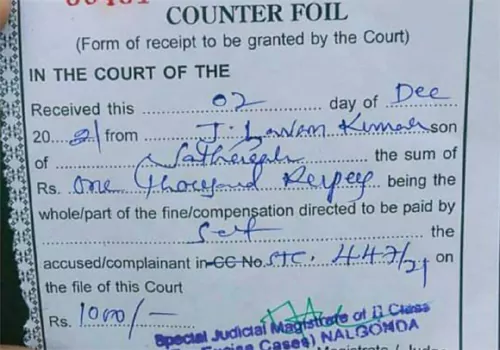 COUNTER FOIL
(Form of receipt to be granted by the Court)
IN THE COURT OF THE
Received this 02 day of Dec
2021 from J. Kumar son
of the sum of
Rs. One Thousand Rupees being the
whole/part of the fine/compensation directed to be paid by
Self the
accused/complainant in CC No. STC. 447/21 on
the file of this Court
Rs. 1000/-
Special Judicial Magistrate of II Class
Excise Cases) NALGONDA